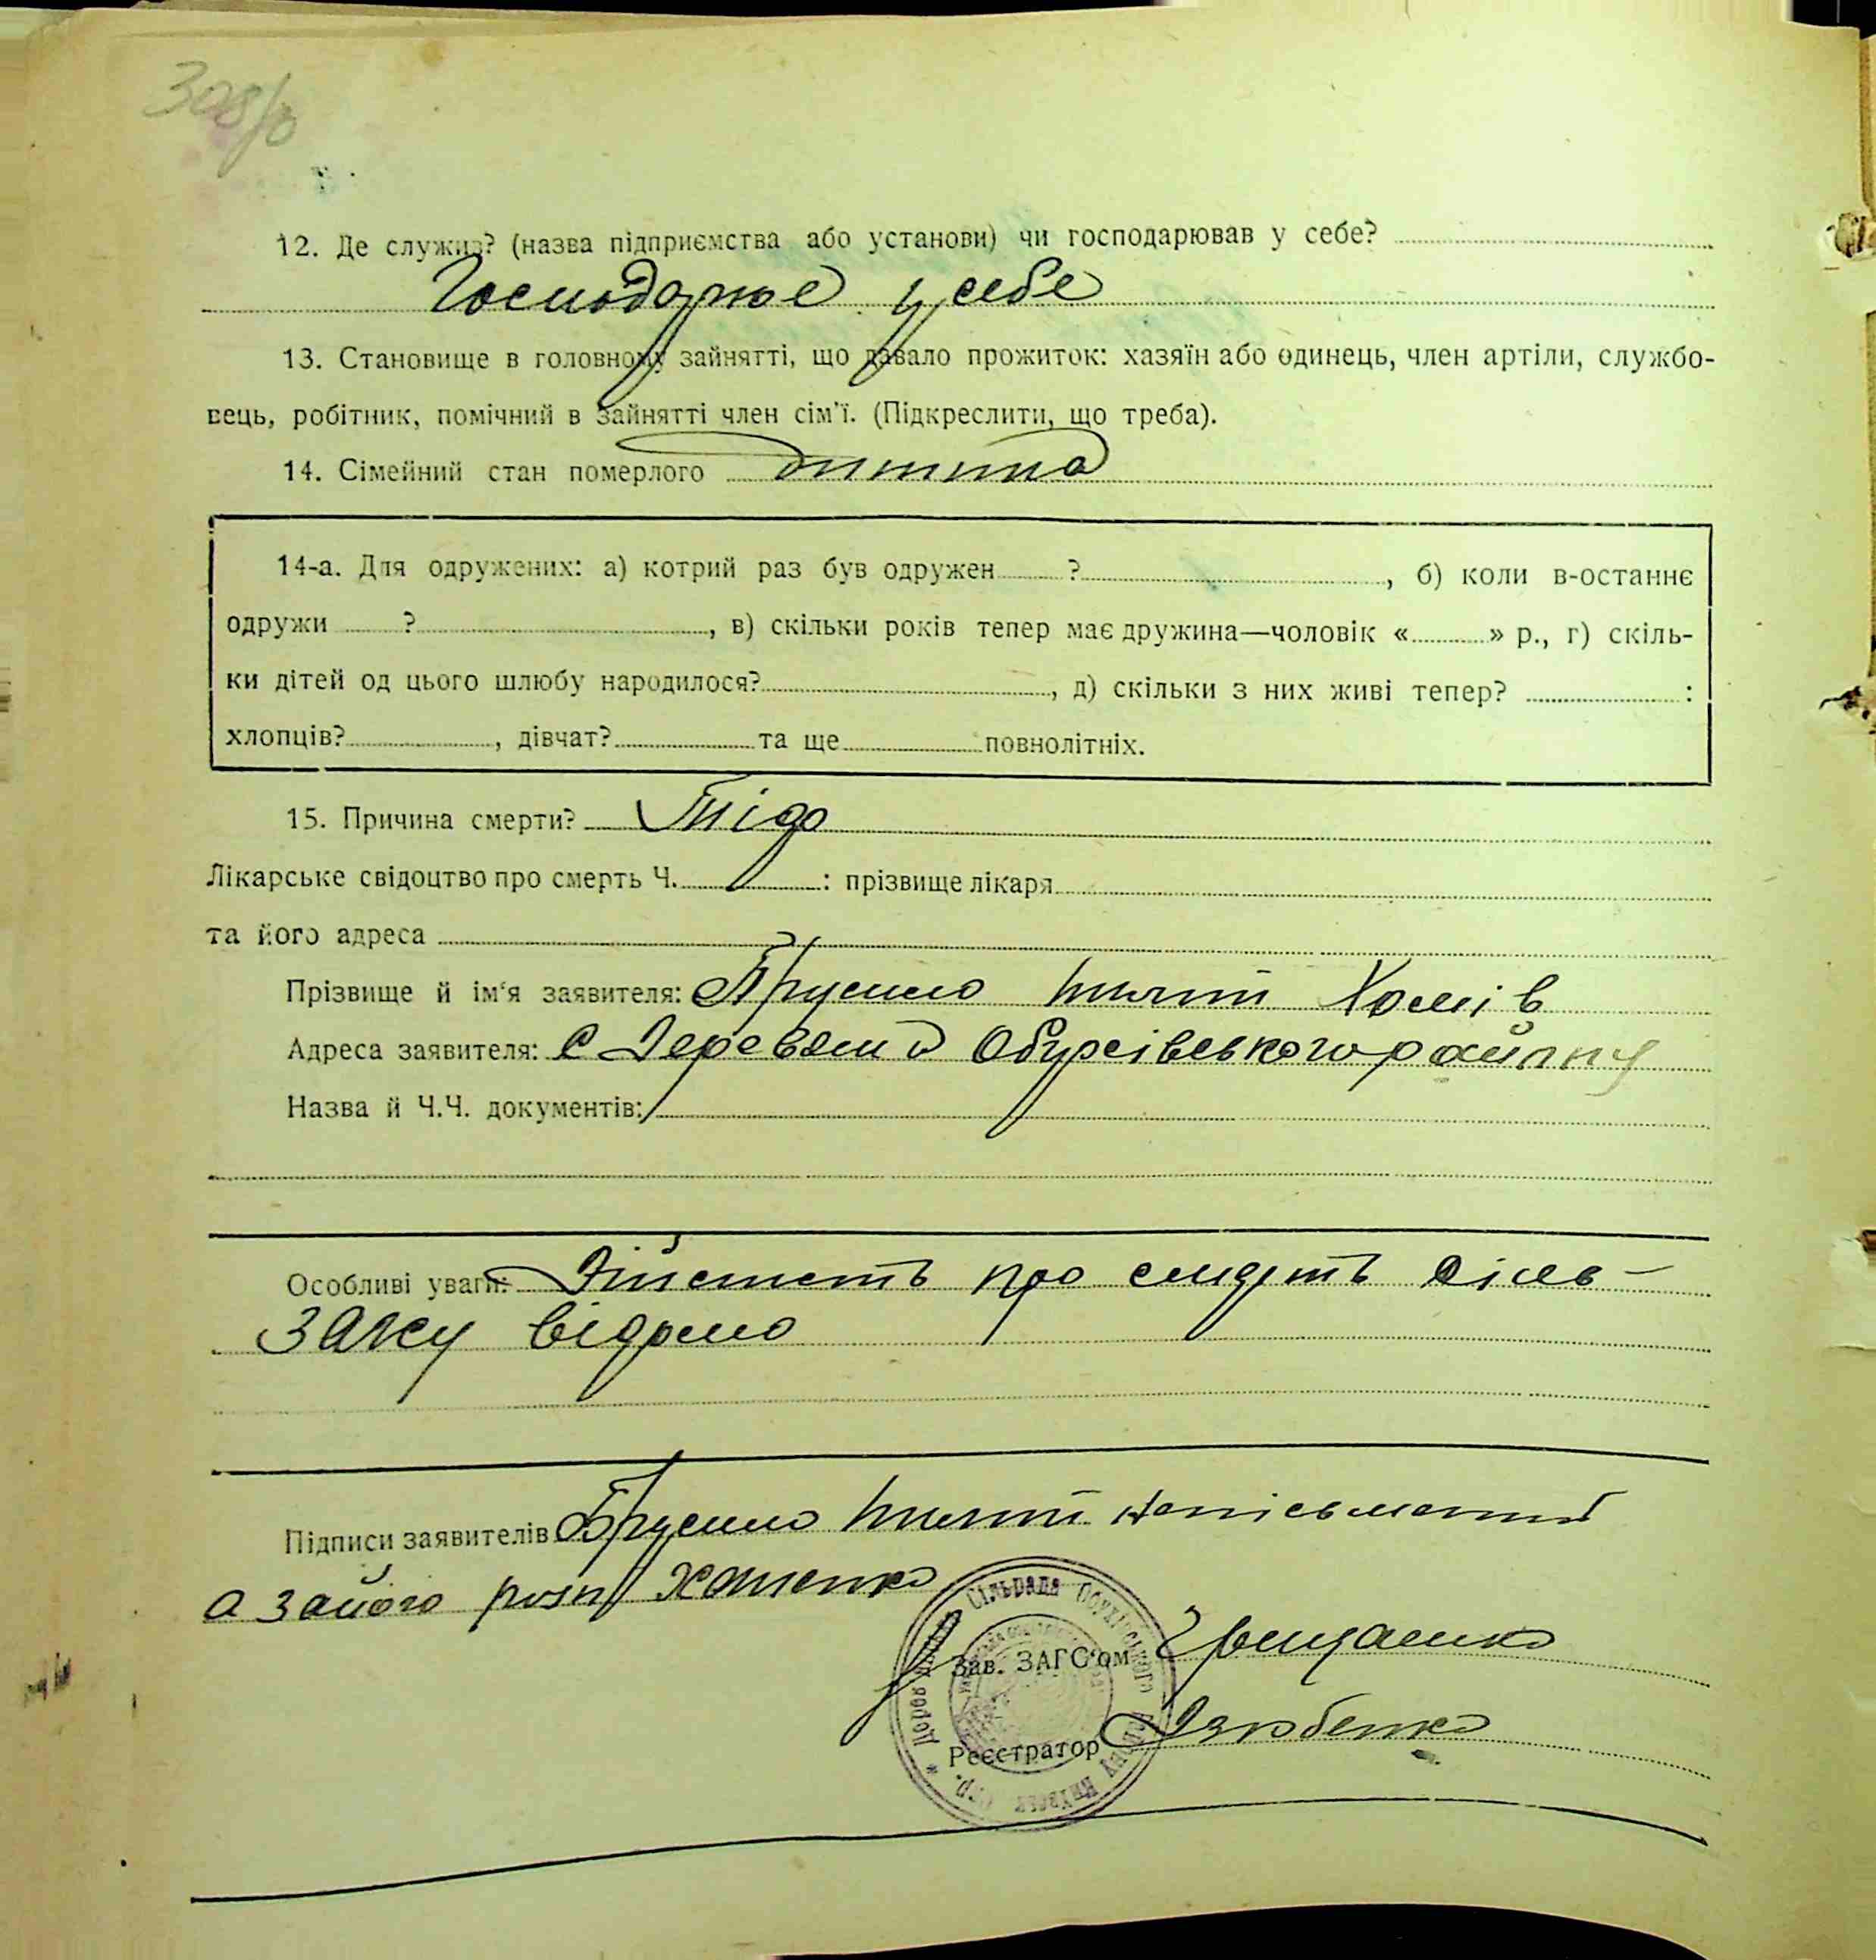 12. Де служив? (назва підприємства або установи) чи господарював у себе?
Господарює у себе
13. Становище в головному зайнятті, що давало прожиток: хазяїн або одинець, член артіли, службо-
вець, робітник, помічний в зайнятті член сім'ї. (Підкреслити, що треба).
14. Сімейний стан померлого дитина
14-а. Для одружених: а) котрий раз був одружен ?, б) коли в-останнє
одружи ?, в) скільки років тепер має дружина—чоловік « » р., г) скіль-
ки дітей од цього шлюбу народилося?, д) скільки з них живі тепер? :
хлопців? , дівчат? та ще повнолітніх.
15. Причина смерти?
Лікарське свідоцтво про смерть Ч. : прізвище лікаря
та його адреса
Прізвище й ім'я заявителя: Хомів
Адреса заявителя: С Деревяна Обухівського району
Назва й Ч.Ч. документів:
Особливі уваги: Дійсність про смерть Сіль-
загсу відомо
Підписи заявителів неписьменний
а за його розп
Зав. ЗАГС'ом
Реєстратор